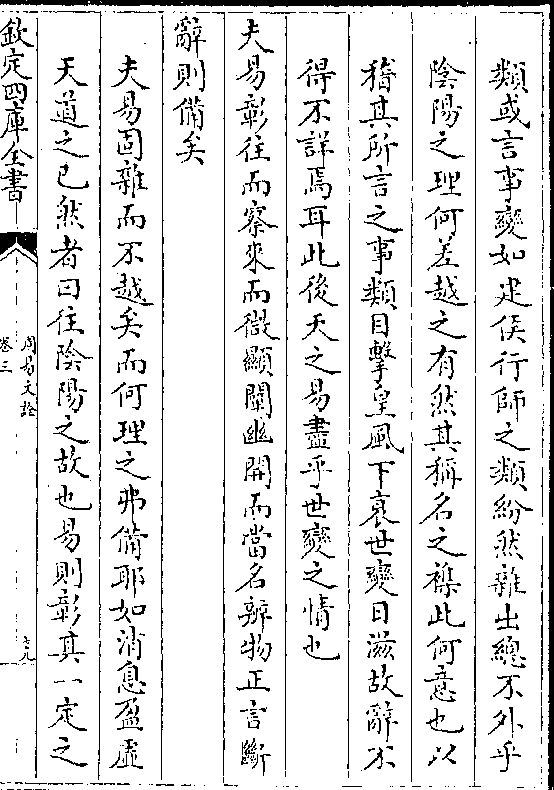 類或言事變如建侯行師之類紛然雜出總不外乎
陰陽之理何差越之有然其稱名之襍此何意也以
稽其所言之事類目擊皇風下衰世變日滋故辭不
得不詳焉耳此後天之易盡乎世變之情也
夫易彰往而察來而微顯闡幽開而當名辨物正言斷
辭則備矣
夫易固雜而不越矣而何理之弗備耶如消息盈虛
天道之已然者曰往陰陽之故也易則彰其一定之
欽定四庫全書
周易文詮
卷三
十九